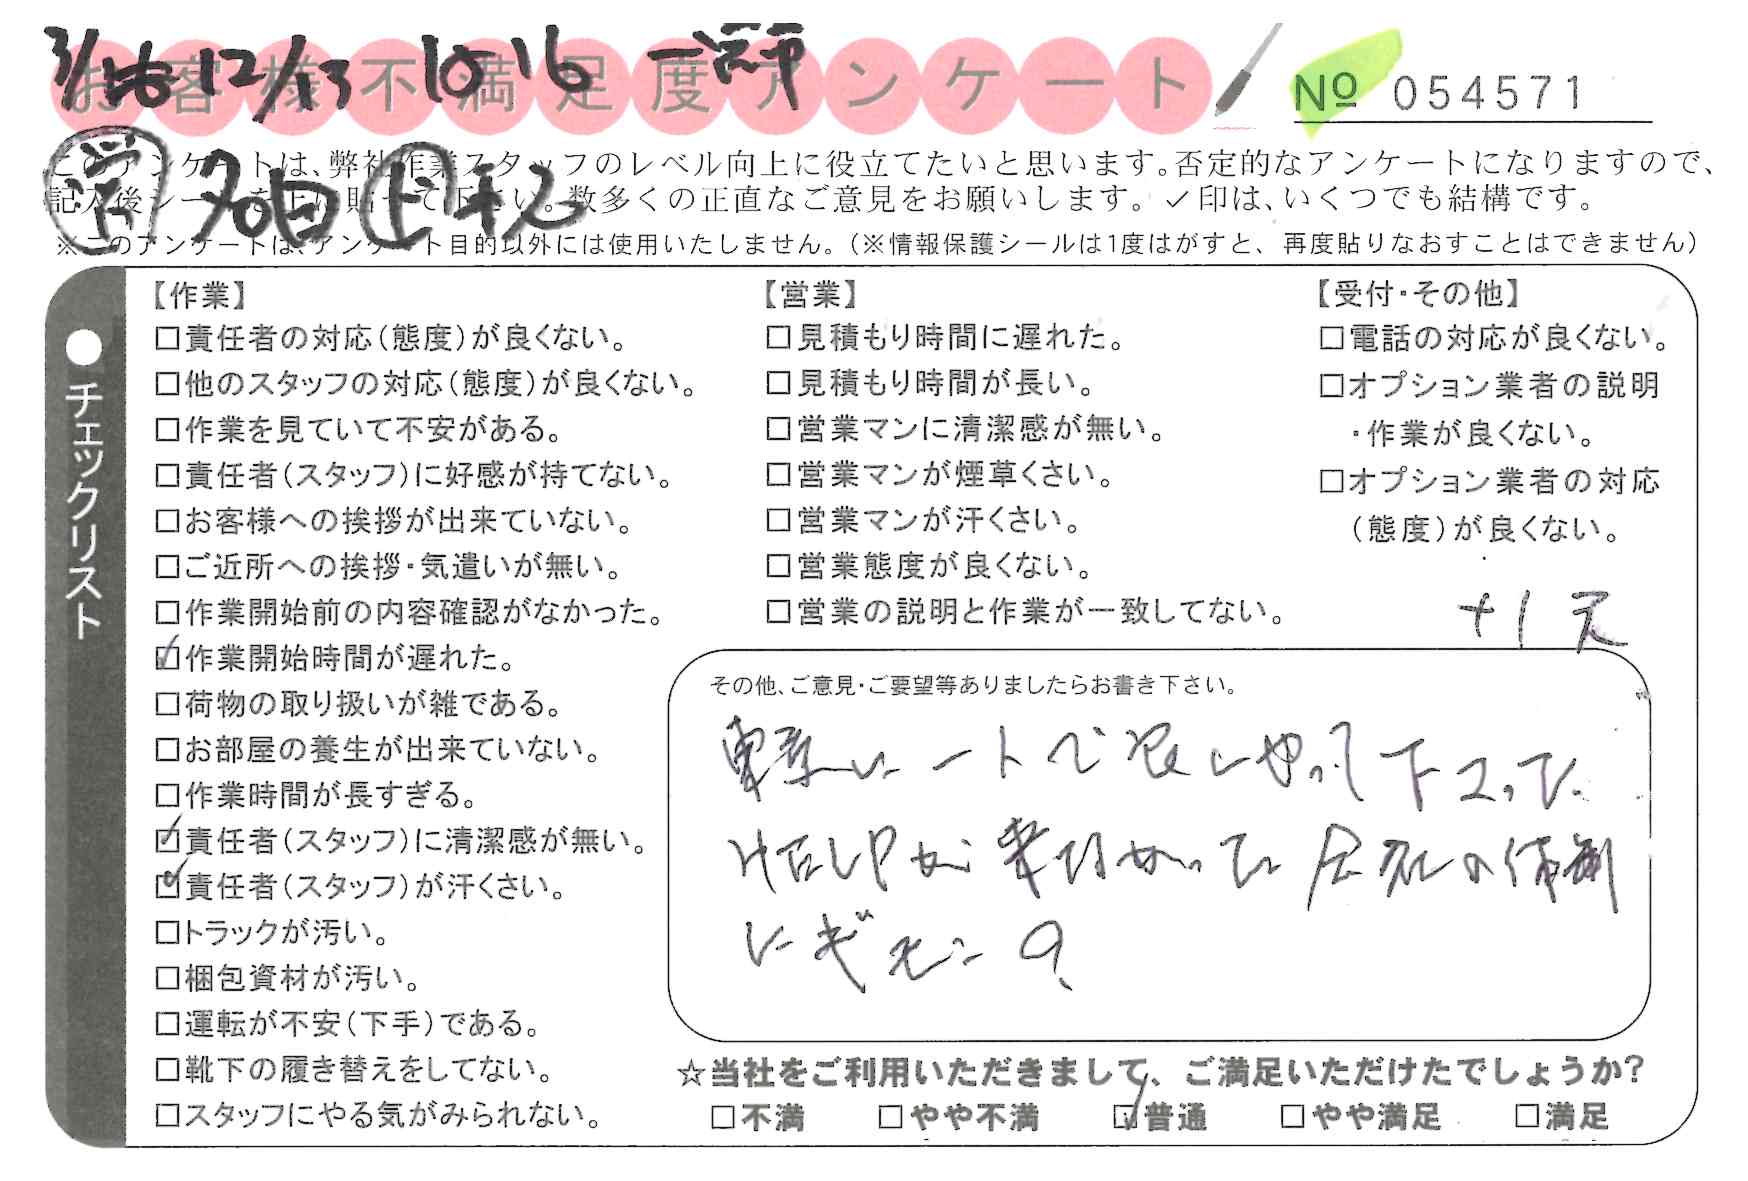 お客様不満足度アンケート
12/13 1016
№ 054571
このアンケートは、弊社作業スタッフのレベル向上に役立てたいと思います。否定的なアンケートになりますので、
記入後シールを上に貼って下さい。数多くの正直なご意見をお願いします。✓印は、いくつでも結構です。
※このアンケートは、アンケート目的以外には使用いたしません。(※情報保護シールは1度はがすと、再度貼りなおすことはできません)
●チェックリスト
【作業】
□責任者の対応(態度)が良くない。
□他のスタッフの対応(態度)が良くない。
□作業を見ていて不安がある。
□責任者(スタッフ)に好感が持てない。
□お客様への挨拶が出来ていない。
□ご近所への挨拶・気遣いが無い。
□作業開始前の内容確認がなかった。
☑作業開始時間が遅れた。
□荷物の取り扱いが雑である。
□お部屋の養生が出来ていない。
□作業時間が長すぎる。
☑責任者(スタッフ)に清潔感が無い。
☑責任者(スタッフ)が汗くさい。
□トラックが汚い。
□梱包資材が汚い。
□運転が不安(下手)である。
□靴下の履き替えをしてない。
□スタッフにやる気がみられない。
【営業】
□見積もり時間に遅れた。
□見積もり時間が長い。
□営業マンに清潔感が無い。
□営業マンが煙草くさい。
□営業マンが汗くさい。
□営業態度が良くない。
□営業の説明と作業が一致してない。
【受付・その他】
□電話の対応が良くない。
□オプション業者の説明
・作業が良くない。
□オプション業者の対応
(態度)が良くない。
その他、ご意見・ご要望等ありましたらお書き下さい。
HELPが来なかった 会社の体制
にギモン?
☆当社をご利用いただきまして、ご満足いただけたでしょうか?
□不満 □やや不満 ☑普通 □やや満足 □満足